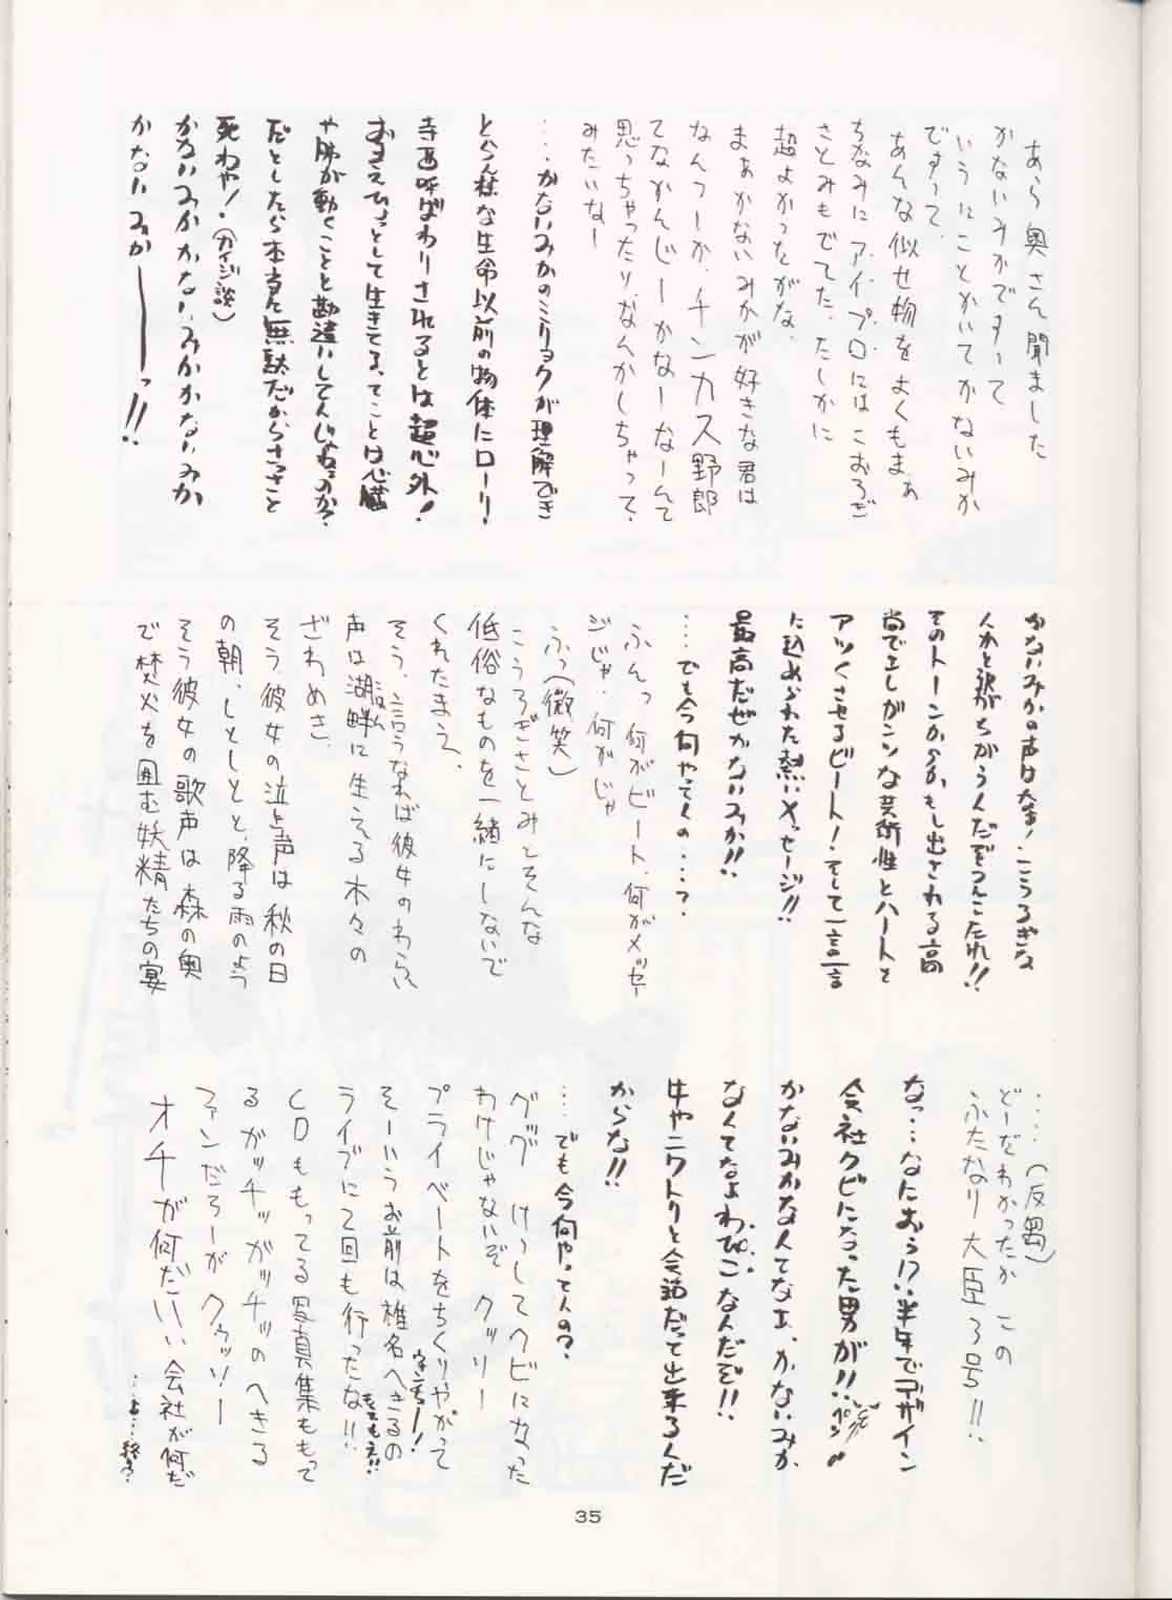 あら奥さん聞ました
かないみかですって
いうにことかいてかないみか
ですって、
あんな似せ物をよくもまぁ
ちなみにアイ・プロにはこおろぎ
さとみもでてた、たしかに
超よかったがな、
まぁかないみかが好きな君は
なんつーか、チンカス野郎
てなかんじーかなーなーんて
思っちゃったり、なんかしちゃって、
みたいなー
…かないみかのミリョクが理解でき
とらん様な生命以前の物体にローリ!
呼ばわりされるとは超心外!
おまえひょっとして生きてる、てことは心臓
や肺が動くことと勘違いしてんじゃねぇのか?
だとしたら本当に無駄だからさっさと
死ねや!(カイジ談)
かないみかかないみかかないみか
かないみかーーっ!!
かないみかの声は大事!こうろぎな
人かと訳がちがうんだぞうんこたれ!!
そのトーンからかもし出される高
尚でエレガンツな芸術性とハートを
アツくさせるビート!そして一言一言
に込められた熱いメッセージ!!
最高だぜかないみか!!
…でも今何やってんの…?
ふんっ何がビート、何がメッセー
ジじゃ、何がじゃ
ふっ(微笑)
こうろぎさとみとそんな
低俗なものを一緒にしないで
くれたまえ、
そう、言うなれば彼女のわらい
声は湖畔に生える木々の
こはん
ざわめき、
そう彼女の泣き声は秋の日
の朝、しとしとと、降る雨のよう
そう彼女の歌声は森の奥
で焚火を囲む妖精たちの宴
…(反芻)
どーだわかったかこの
ふたなり大臣3号!!
なっ…なにおぅ!?半年でデザイン
会社クビになった男が!!
かないみかなんてなエ、かないみか
なくてなよわぴこなんだぞ!!
牛やニワトリと会話だって出来るんだ
からな!!
…でも今何やってんの?
ググけっしてクビになった
わけじゃないぞクッソー
プライベートをちくりやがって
ウンチョー!
そーいうお前は椎名へきるの
もってもえ!!
ライブに2回も行ったな!!
CDももってる写真集ももって
るガッチッガッチッのへきる
ファンだろーがクゥッソー
オチが何だいい会社が何だ
…よ…終る?
35